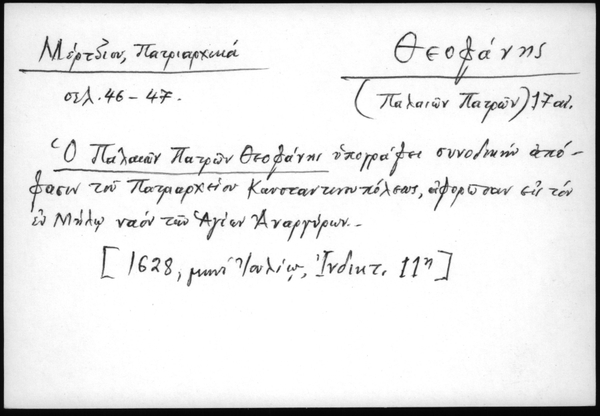 Μέρτζιου, Πατριαρχικά
Θεοφάνης
σελ. 46 – 47.
(Παλαιῶν Πατρῶν) 17 αἰ.
Ὁ Παλαιῶν Πατρῶν Θεοφάνης ὑπογράφει συνοδικήν ἀπό-
φασιν τοῦ Πατριαρχείου Κωνσταντινουπόλεως, ἀφορῶσαν εἰς τόν
ἐν Μήλῳ ναόν τῶν Ἁγίων Ἀναργύρων.–
[1628, μηνί Ἰουλίῳ, Ἰνδικτ. 11η]